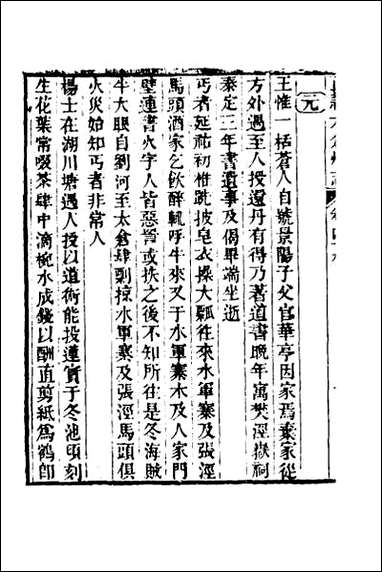 元
王惟一括蒼人自號景陽子父官華亭因家焉棄家從
方外遇至人授還丹有得乃著道書晚年寓樊涇嶽祠
泰定三年書遺事及偈畢端坐逝
丐者延祐初惟跣披皂衣操大瓢往來水軍寨及張涇
馬頭酒家乞飲醉輒呼牛來又于水軍寨木及人家門
壁連書火字人皆惡詈或抶之後不知所往是冬海賊
牛大眼自劉河至太倉肆剽掠水軍寨及張涇馬頭俱
火災始知丐者非常人
楊士在湖川塘遇人授以道術能投蓮實于冬池頃刻
生花葉常啜茶肆中滴椀水成錢以酬直剪紙為鶴卽